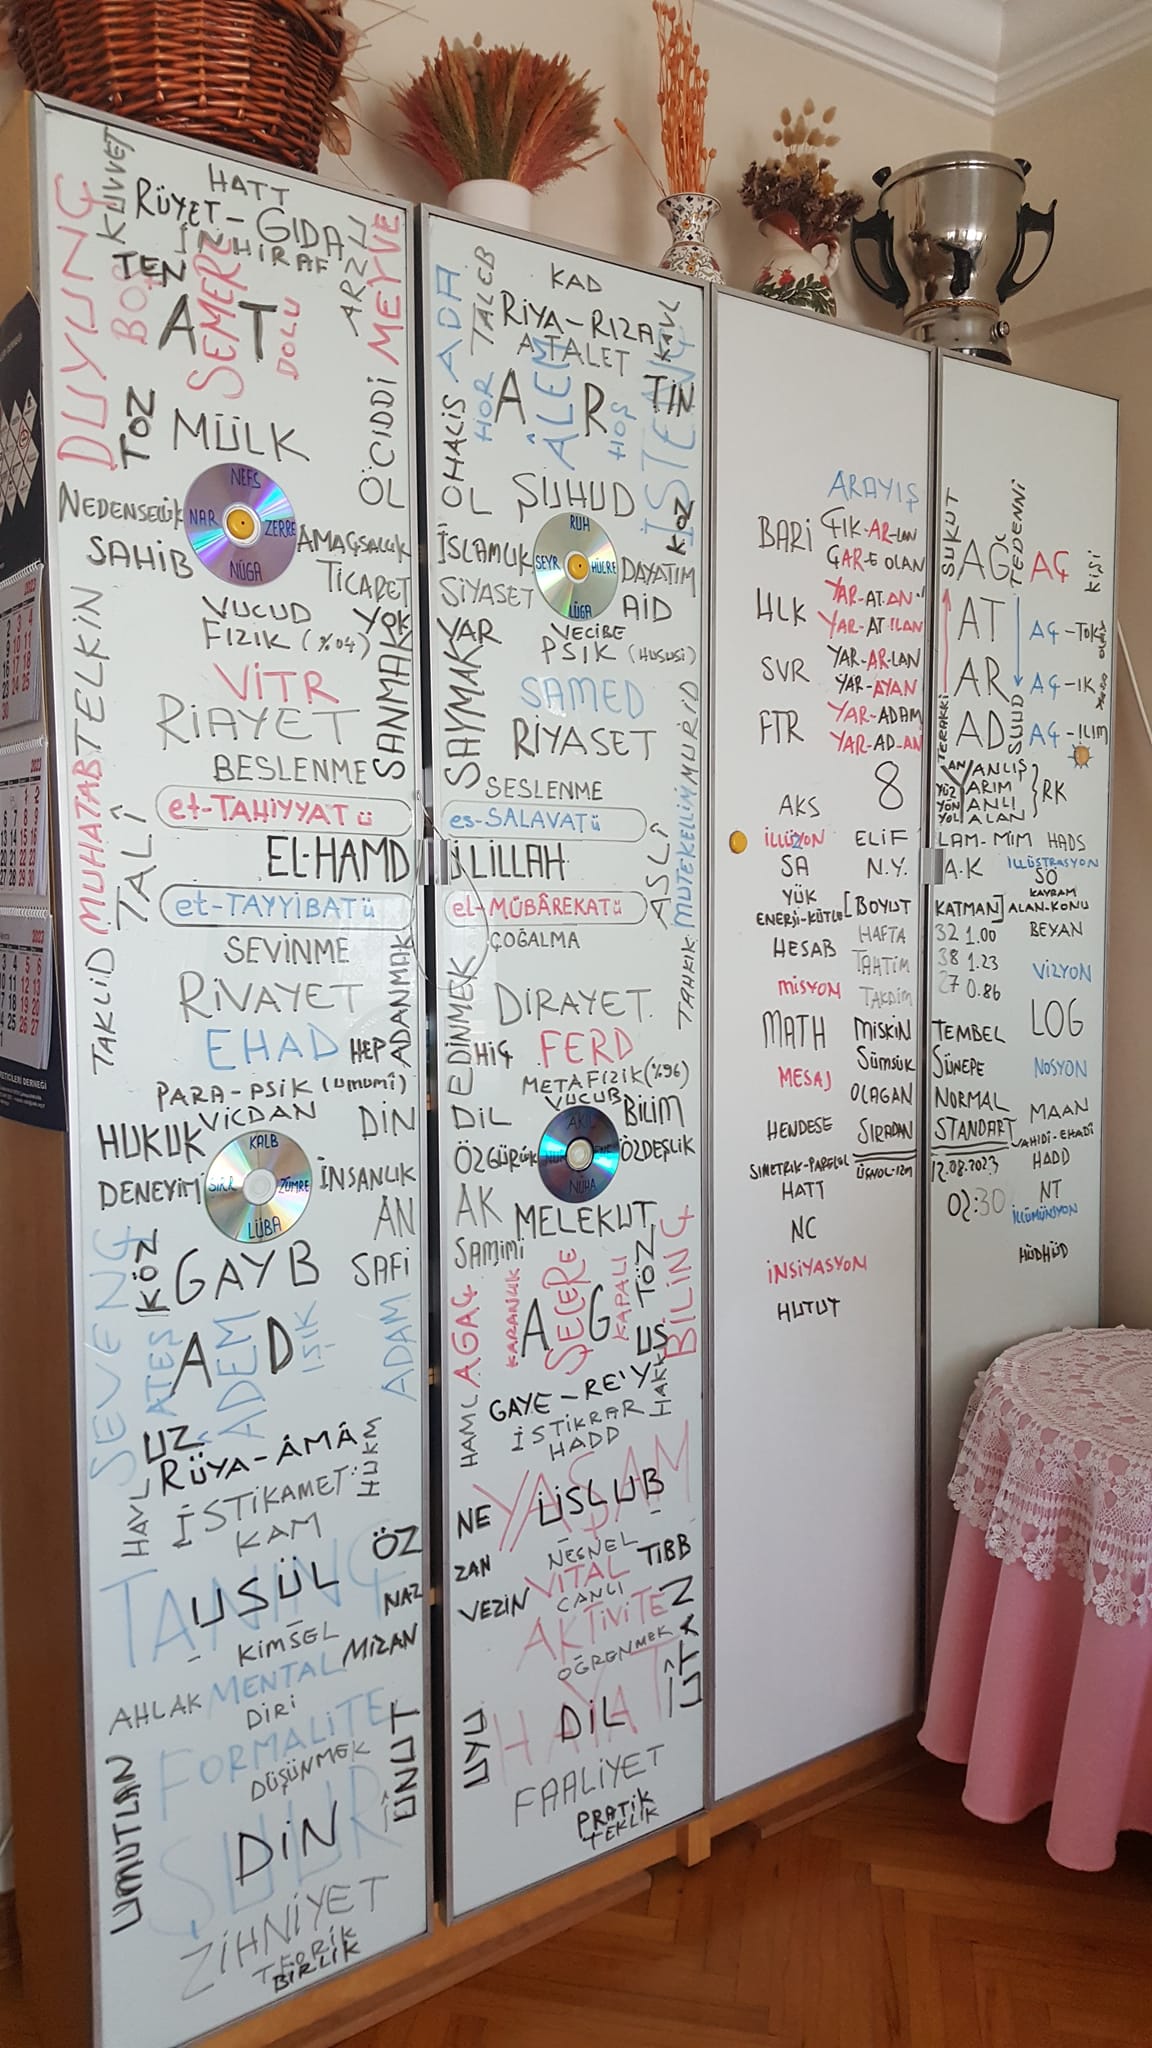 HATT
KUVVET
RÜYET-GIDA
İNHİRAF
ARZU
MEYVE
DUYUNÇ
TEN
BOŞ
AT
SEMERE
DOLU
CİDDİ
TOZ
MÜLK
ÖL
NEFS
NAR
ZERRE
NÜGA
NEDENSELLİK
SAHİB
AMAÇSALLIK
TİCARET
VUCUD
YOK
FIZIK (%04)
VİTR
RİAYET
SANMAK
BESLENME
TELKİN
MUHATAB
TALÎ
TAKLİD
et-TAHİYYATÜ
EL-HAMDÜ LİLLAH
et-TAYYİBATÜ
SEVİNME
RİVAYET
ADANMAK
EHAD
HEP
PARA-PSİK (UMUMİ)
VİCDAN
DİN
HUKUK
KALB
SIRR
ZÜMRE
LÜBA
DENEYİM
İNSANLIK
AN
SEVENÇ
KÖZ
GAYB
SAFİ
ATEŞ
AD
ADEM
IŞIK
ADAM
UZ
RÜYA-ÂMÂ
HAVL
İSTİKAMET
HUKM
KAM
ÖZ
TANINÇ
USÜL
NAZ
KİMSEL
MİZAN
AHLAK
MENTAL
DİRİ
FORMALİTE
DÜŞÜNMEK
UMUTLAN
ÜNUT
ŞUUR
DİN
ZİHNİYET
TEORİK
BİRLİK
KAD
TALEB
ADA
RİYA-RIZA
ATALET
KAVL
İSTENÇ
OHALİS
HOR
AR
ÂLEM
HOŞ
TİN
ÖL
ŞUHUD
KOZ
RUH
SEYR
HÜCRE
LÜGA
İSLAMLIK
SİYASET
DAYATIM
AİD
YAR
VECİBE
PSIK (HUSUSİ)
SAYMAK
SAMED
RİYASET
SESLENME
MURİD
MUTEKELLİM
es-SALAVATÜ
ASLÎ
el-MÜBÂREKATÜ
ÇOĞALMA
TAHKİK
EDİNMEK
DİRAYET
HİÇ
FERD
METAFIZİK (%96)
VUCUB
DİL
BİLİM
AKIL
NUR
NÜHA
ÖZGÜRLÜK
ÖZDEŞLİK
AK
MELEKUT
SAMİMİ
TÖZ
BİLİNÇ
AĞAÇ
KARANLIK
AG
ŞECERE
KAPALI
US
HAML
GAYE-RE'Y
HAKK
İSTİKRAR
HADD
YAŞAM
NE
ÜSLUB
NESNEL
TIBB
ZAN
VİTAL
VEZİN
CANLI
AKTİVİTE
ÖĞRENMEK
UYU
HAYAT
DİL
FAALİYET
PRATİK
TEKLİK
ARAYIŞ
BARİ
ÇIK-AR-LAN
ÇAR-E OLAN
HLK
YAR-AT-AN
YAR-AT-ILAN
SVR
YAR-AR-LAN
YAR-AYAN
FTR
YAR-ADAM
YAR-AD-AN
8
AKS
İLLÜZYON
ELİF
SA
N.Y.
YÜK
ENERJİ-KÜTLE
[BOYUT
HESAB
HAFTA
TAHTİM
MİSYON
TAKDİM
MATH
MİSKİN
SÜMSÜK
MESAJ
OLAGAN
HENDESE
SIRADAN
SİMETRİK-PARELEL
ÜÇNOL-IZM
HATT
NC
İNSİYASYON
HUTUT
SUKUT
TEDENNİ
AĞ
AÇ
KİŞİ
AT
AÇ-TOK
AR
AÇ-IK
AD
AÇ-ILIM
TERAKKİ
SUUD
AN
YÜZ
YÖN
YOL
YANLIŞ
YARIM
YANLI
YALAN
RK
LAM-MİM
HADS
A.K
İLLÜSTRASYON
SÖ
KAVRAM
KATMAN]
ALAN-KONU
32 1.00
BEYAN
38 1.23
VİZYON
27 0.86
LOG
TEMBEL
SÜNEPE
NOSYON
NORMAL
MAAN
STANDART
VAHİDİ-EHADİ
12.08.2023
HADD
02:30
NT
İLLÜMÜNSYON
HÜDHÜD